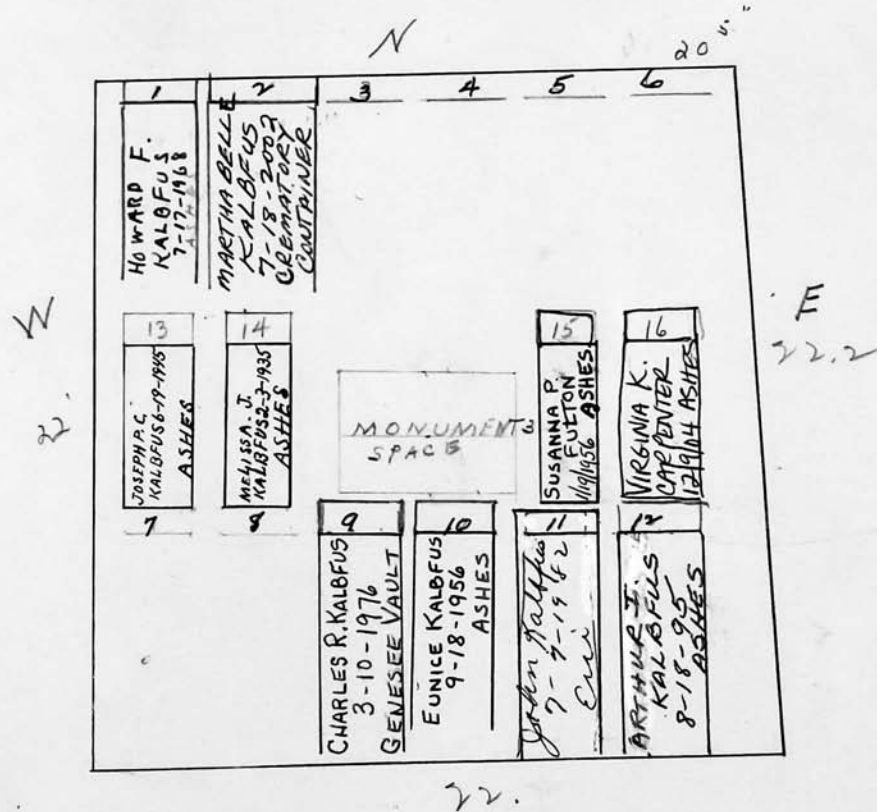 N
20
1
2
3
4
5
6
HOWARD F.
KALBFUS
7-17-1968
ASHES
MARTHA BELLE
KALBFUS
7-18-2003
CREMATORY
CONTAINER
W
22.
E
22.2
13
JOSEPH P. C.
KALBFUS 6-19-1945
ASHES
14
MELISSA. J.
KALBFUS 2-3-1935
ASHES
MONUMENTS
SPACE
15
SUSANNA P.
FULTON
1/19/1956 ASHES
16
VIRGINIA K.
CARPENTER
12/9/04 ASHES
7
8
9
CHARLES R. KALBFUS
3-10-1976
GENESEE VAULT
10
EUNICE KALBFUS
9-18-1956
ASHES
11
John Kalbfus
7-7-1982
12
ARTHUR
KALBFUS
8-18-95
ASHES
22.